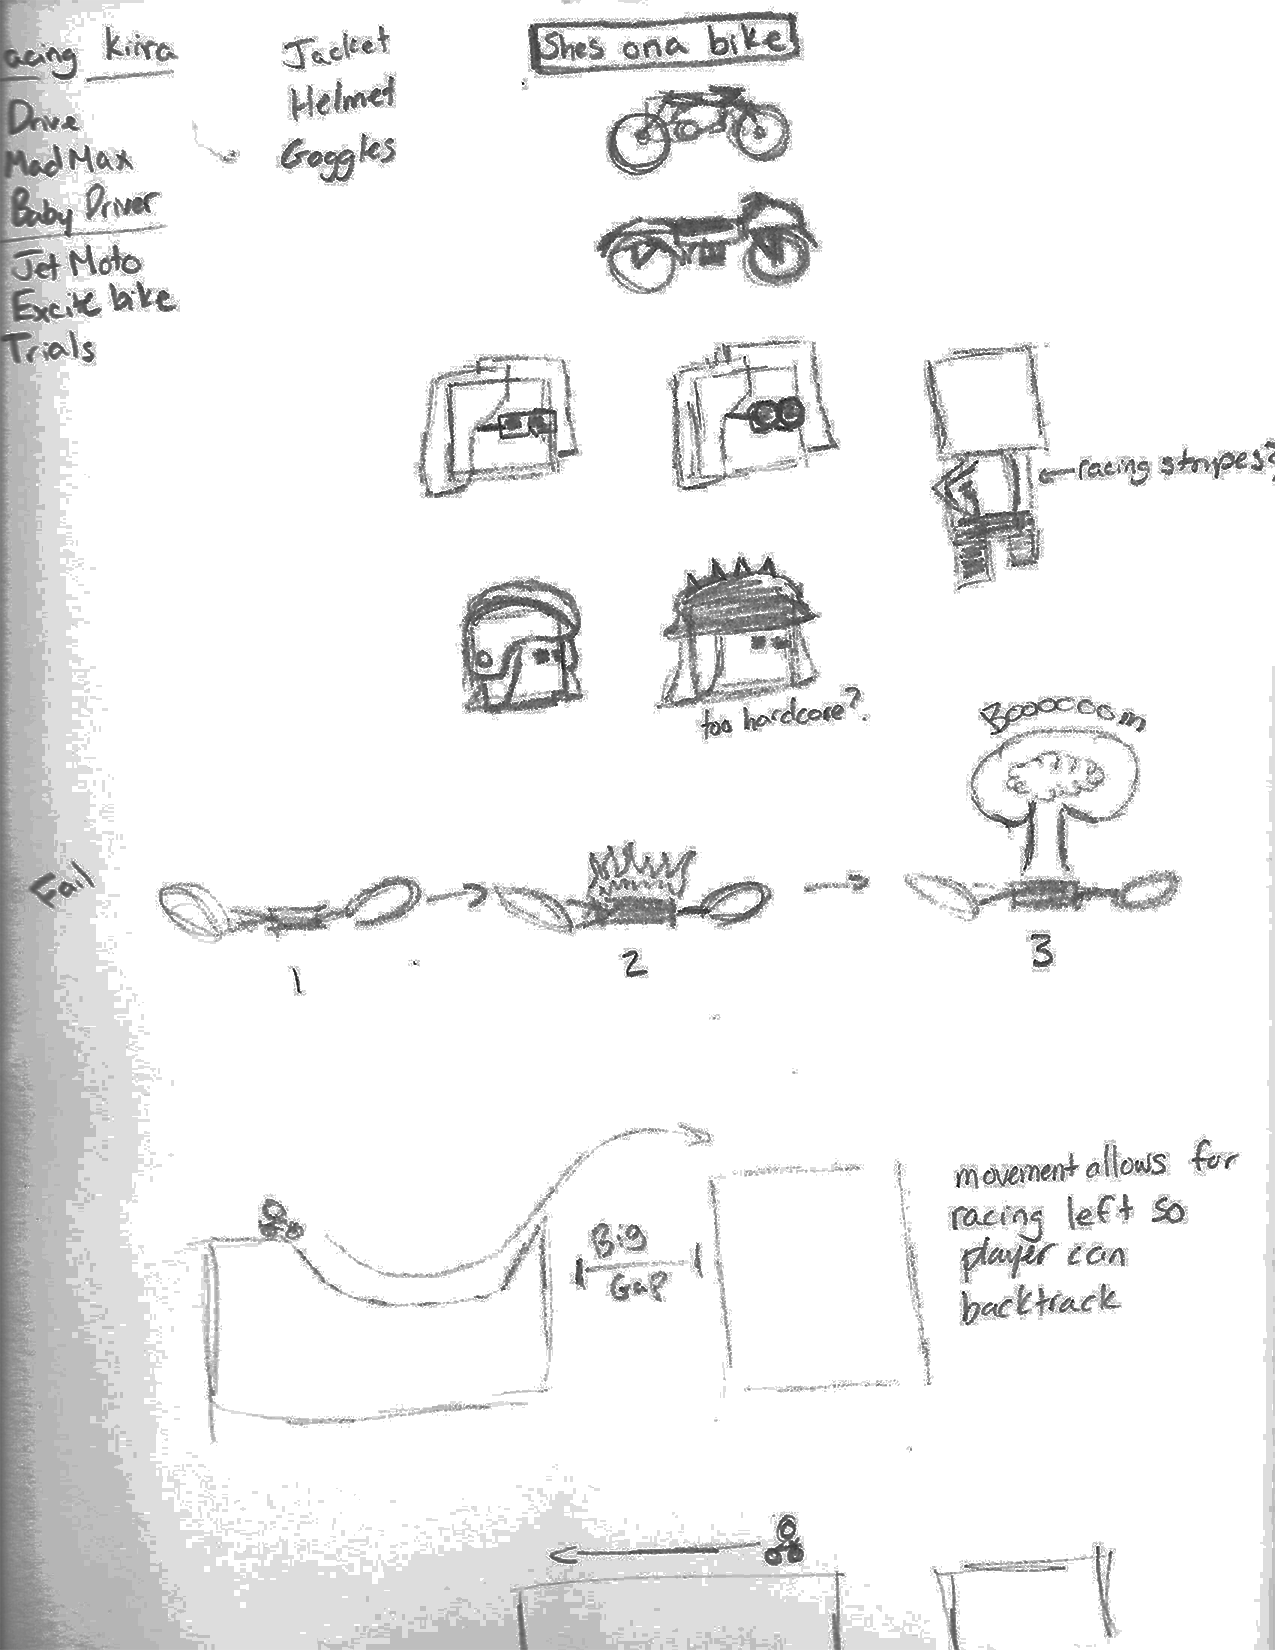 acing Kiira
Drive
Mad Max
Baby Driver
Jet Moto
Excite bike
Trials
Jacket
Helmet
Goggles
Shes on a bike
racing stripes?
too hardcore?
Boooooom
Fail
1
2
3
Big
Gap
movement allows for
racing left so
player can
backtrack